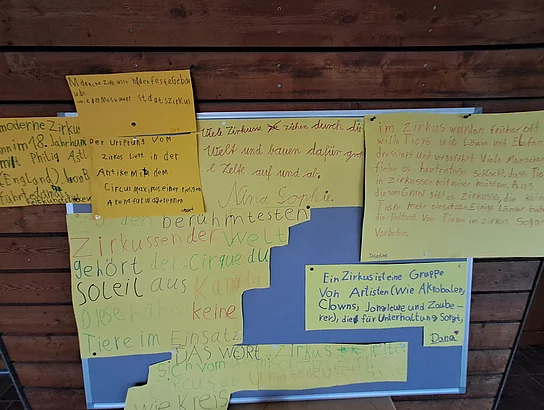 Manche Zirkusse haben feste Gebäude
wie der Moskauer Staatszirkus
moderne Zirkus
ann im 18. Jahrhun
mit Philip Astl
(England)
Der Ursprung vom
Zirkus liegt in der
Antike mit dem
Circus maximus einer riesigen
Arena für Wagenrennen
Viele Zirkusse ziehen durch die
Welt und bauen dafür
Zelte auf und ab.
Nina Sophie.
im Zirkus wurden früher oft
wilde Tiere wie Löwen und Elefan
dressiert und vorgeführt. Viele Menschen
finden es heutzutage schlecht, dass Tiere
in Zirkussen auftreten müssen. Aus
diesem Grund gibt es Zirkusse, die keine
Tiere mehr einsetzen. Einige Länder haben
die Haltung von Tieren im Zirkus sogar
verboten.
Josefine
berühmtesten
Zirkussen der Welt
gehört der „Cirque du
Soleil aus Kanada
Dieser hat keine
Tiere im Einsatz
Ein Zirkus ist eine Gruppe
von Artisten (Wie Akrobaten,
Clowns, Jongleure und Zaube-
rer), die für Unterhaltung sorgt.
Dana
DAS WORT „Zirkus" leitet
sich vom
wie Kreis